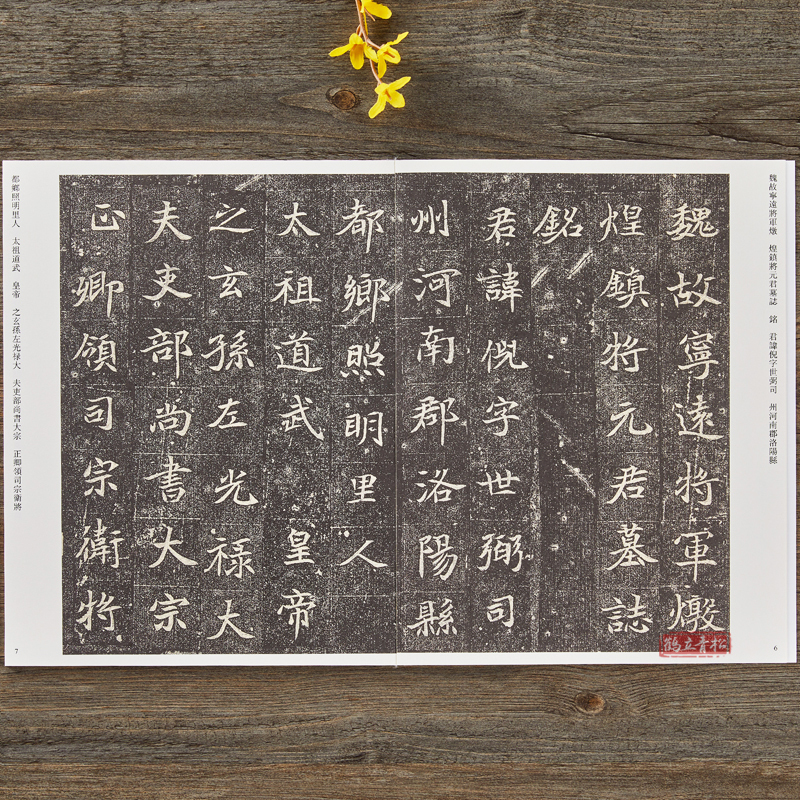 魏故寧遠將軍燉 煌鎮將元君墓誌 銘 君諱倪字世弼司 州河南郡洛陽縣
6
魏故寧遠將軍燉
煌鎮將元君墓誌
銘
君諱倪字世弼司
州河南郡洛陽縣
都鄉照明里人
太祖道武 皇帝
之玄孫左光禄大
夫吏部尚書大宗
正卿領司宗衛將
鶴立青松
都鄉照明里人 太祖道武 皇帝 之玄孫左光禄大 夫吏部尚書大宗 正卿領司宗衛將
7